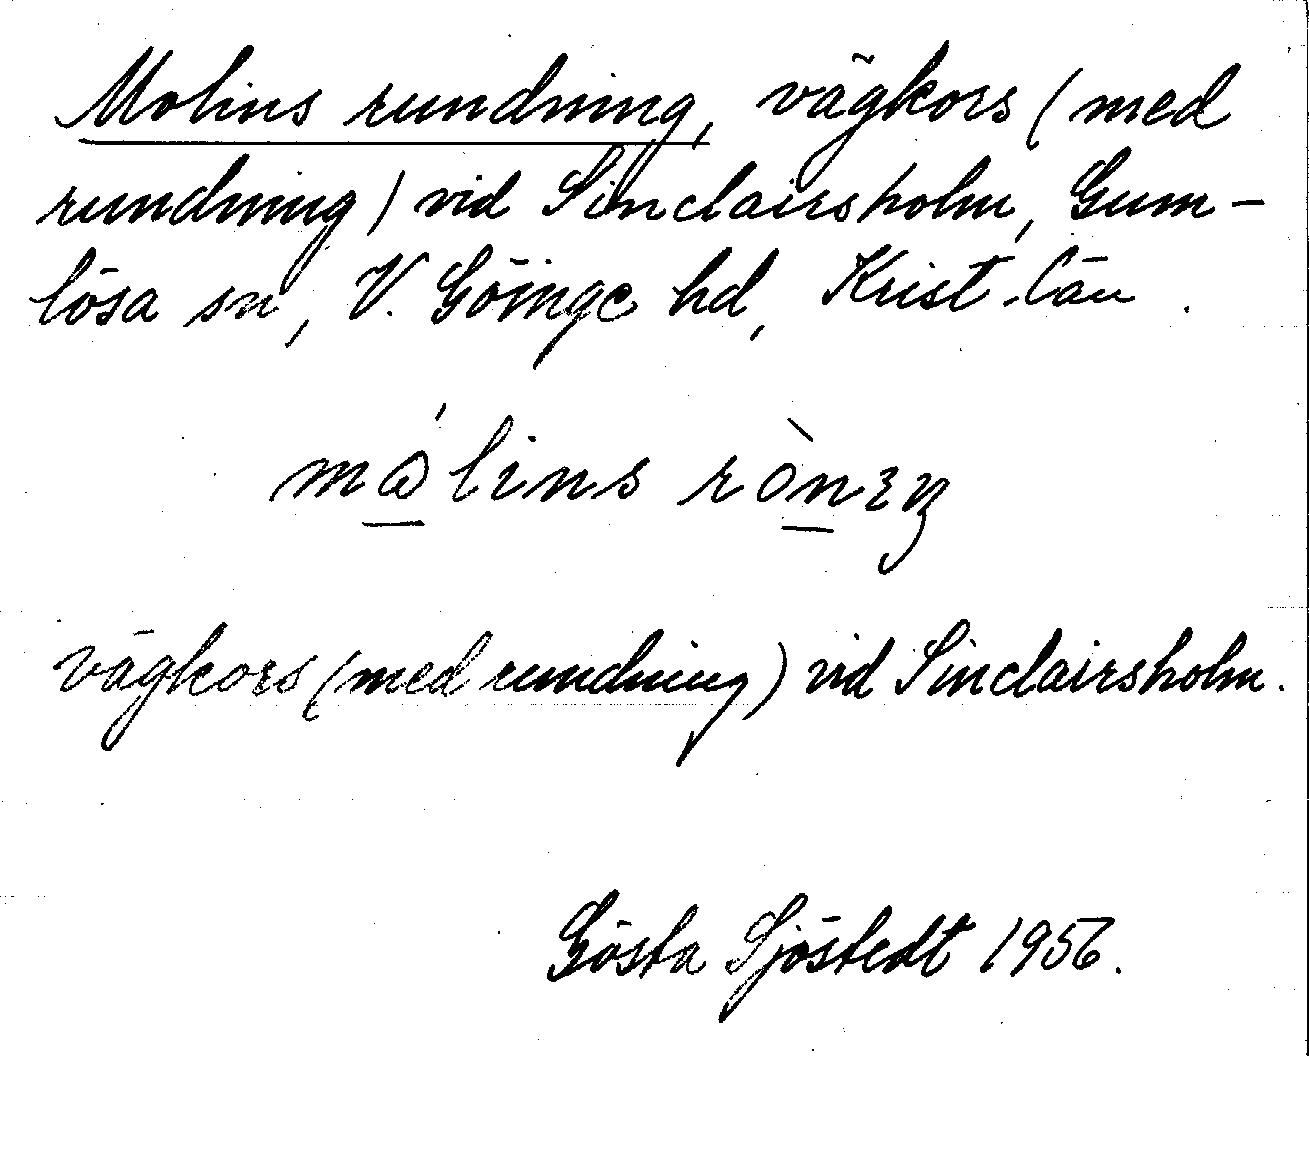 Molins rundning, vägkors (med
rundning) vid Sinclairsholm, Gum-
lösa sn, V. Göinge hd, Krist. län.
vägkors (med rundning) vid Sinclairsholm.
Gösta Sjöstedt 1956.